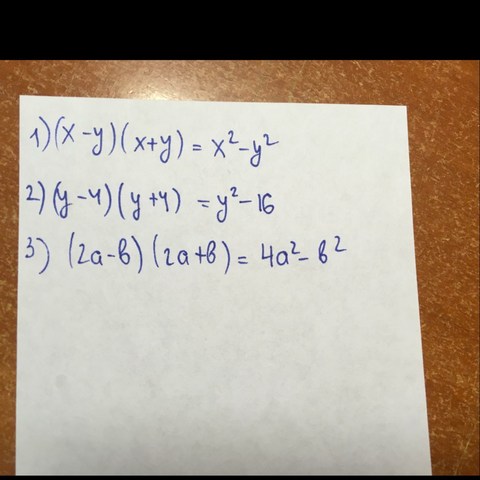 1) (x-y)(x+y) = x²-y²
2) (y-4)(y+4) = y²-16
3) (2a-b)(2a+b) = 4a²-b²